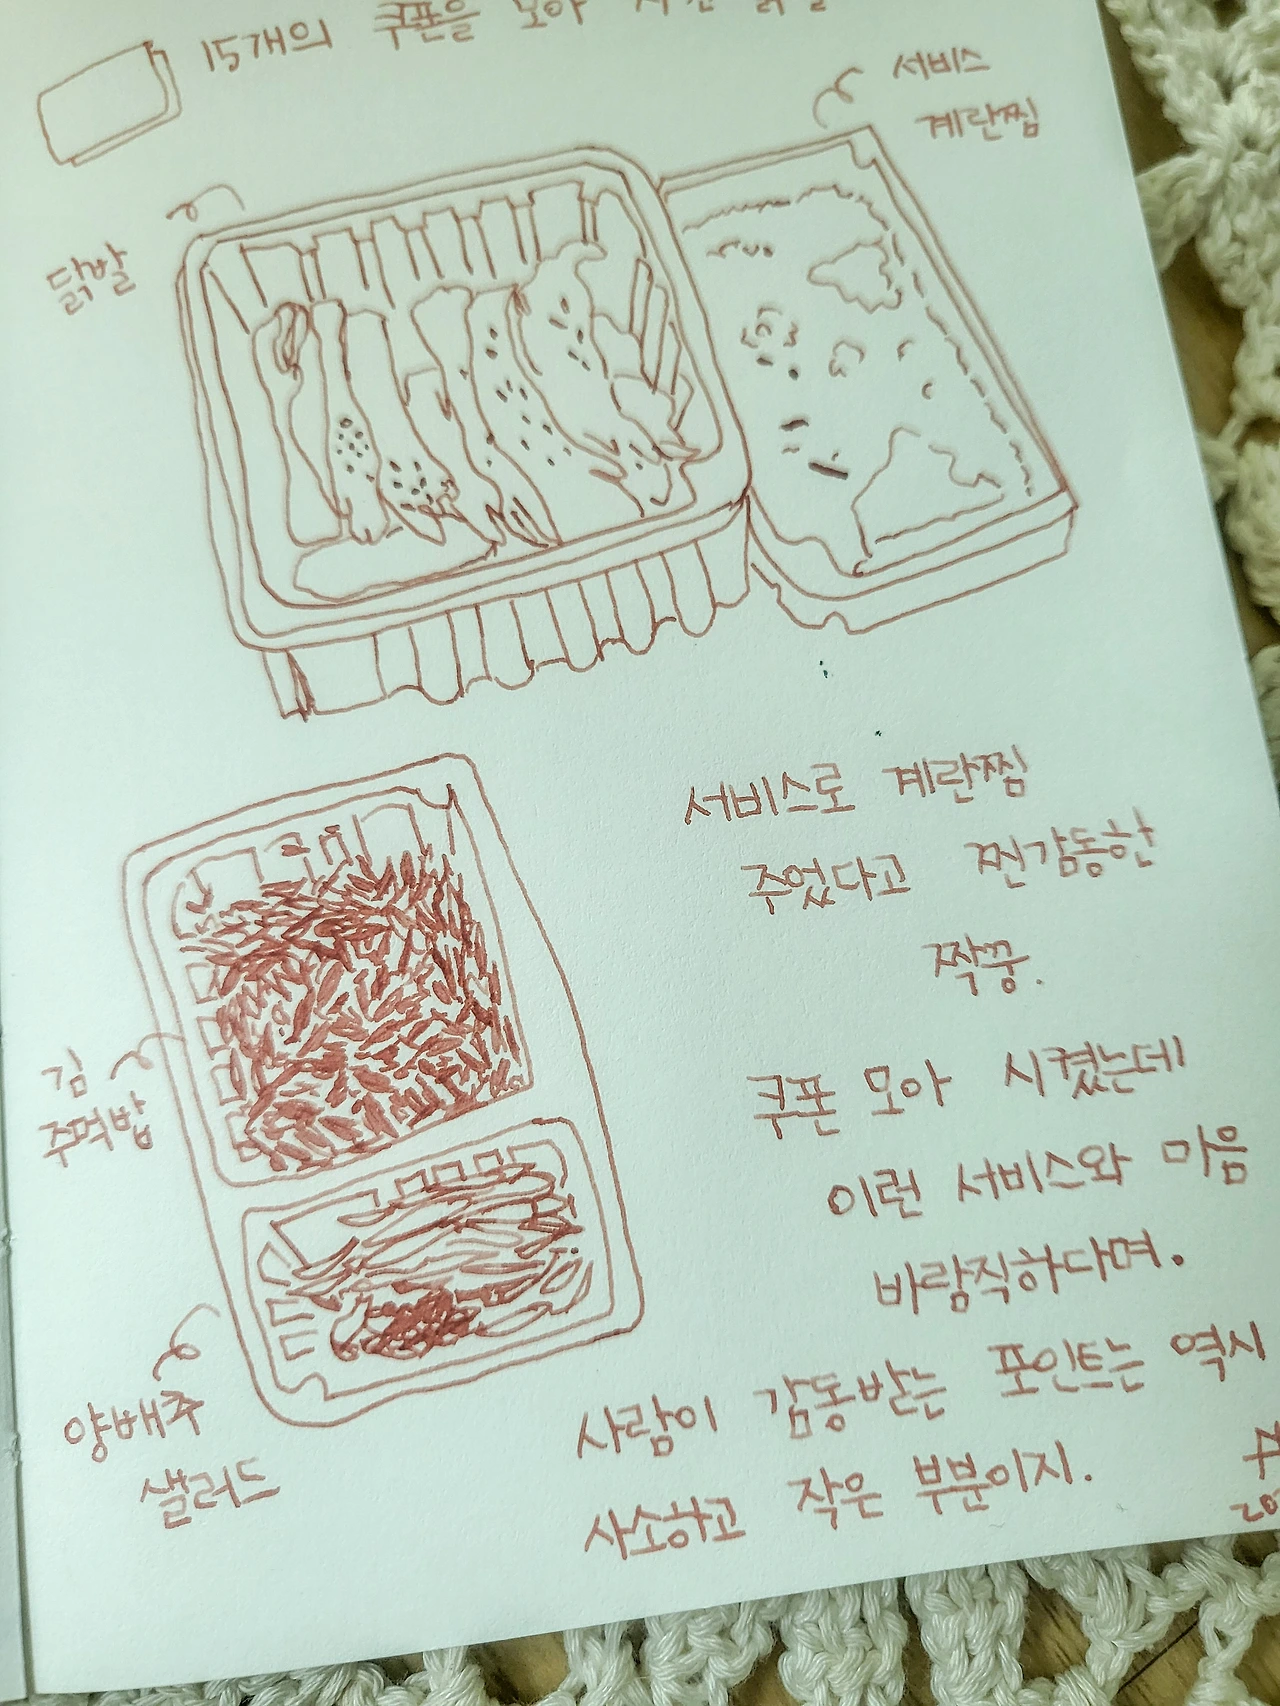 15개의 쿠폰을 모아
서비스
계란찜
닭발
서비스로 계란찜
주었다고 찐감동한
짝꿍.
쿠폰 모아 시켰는데
이런 서비스와 마음
바람직하다며.
김
주먹밥
양배추
샐러드
사람이 감동받는 포인트는 역시
사소하고 작은 부분이지.